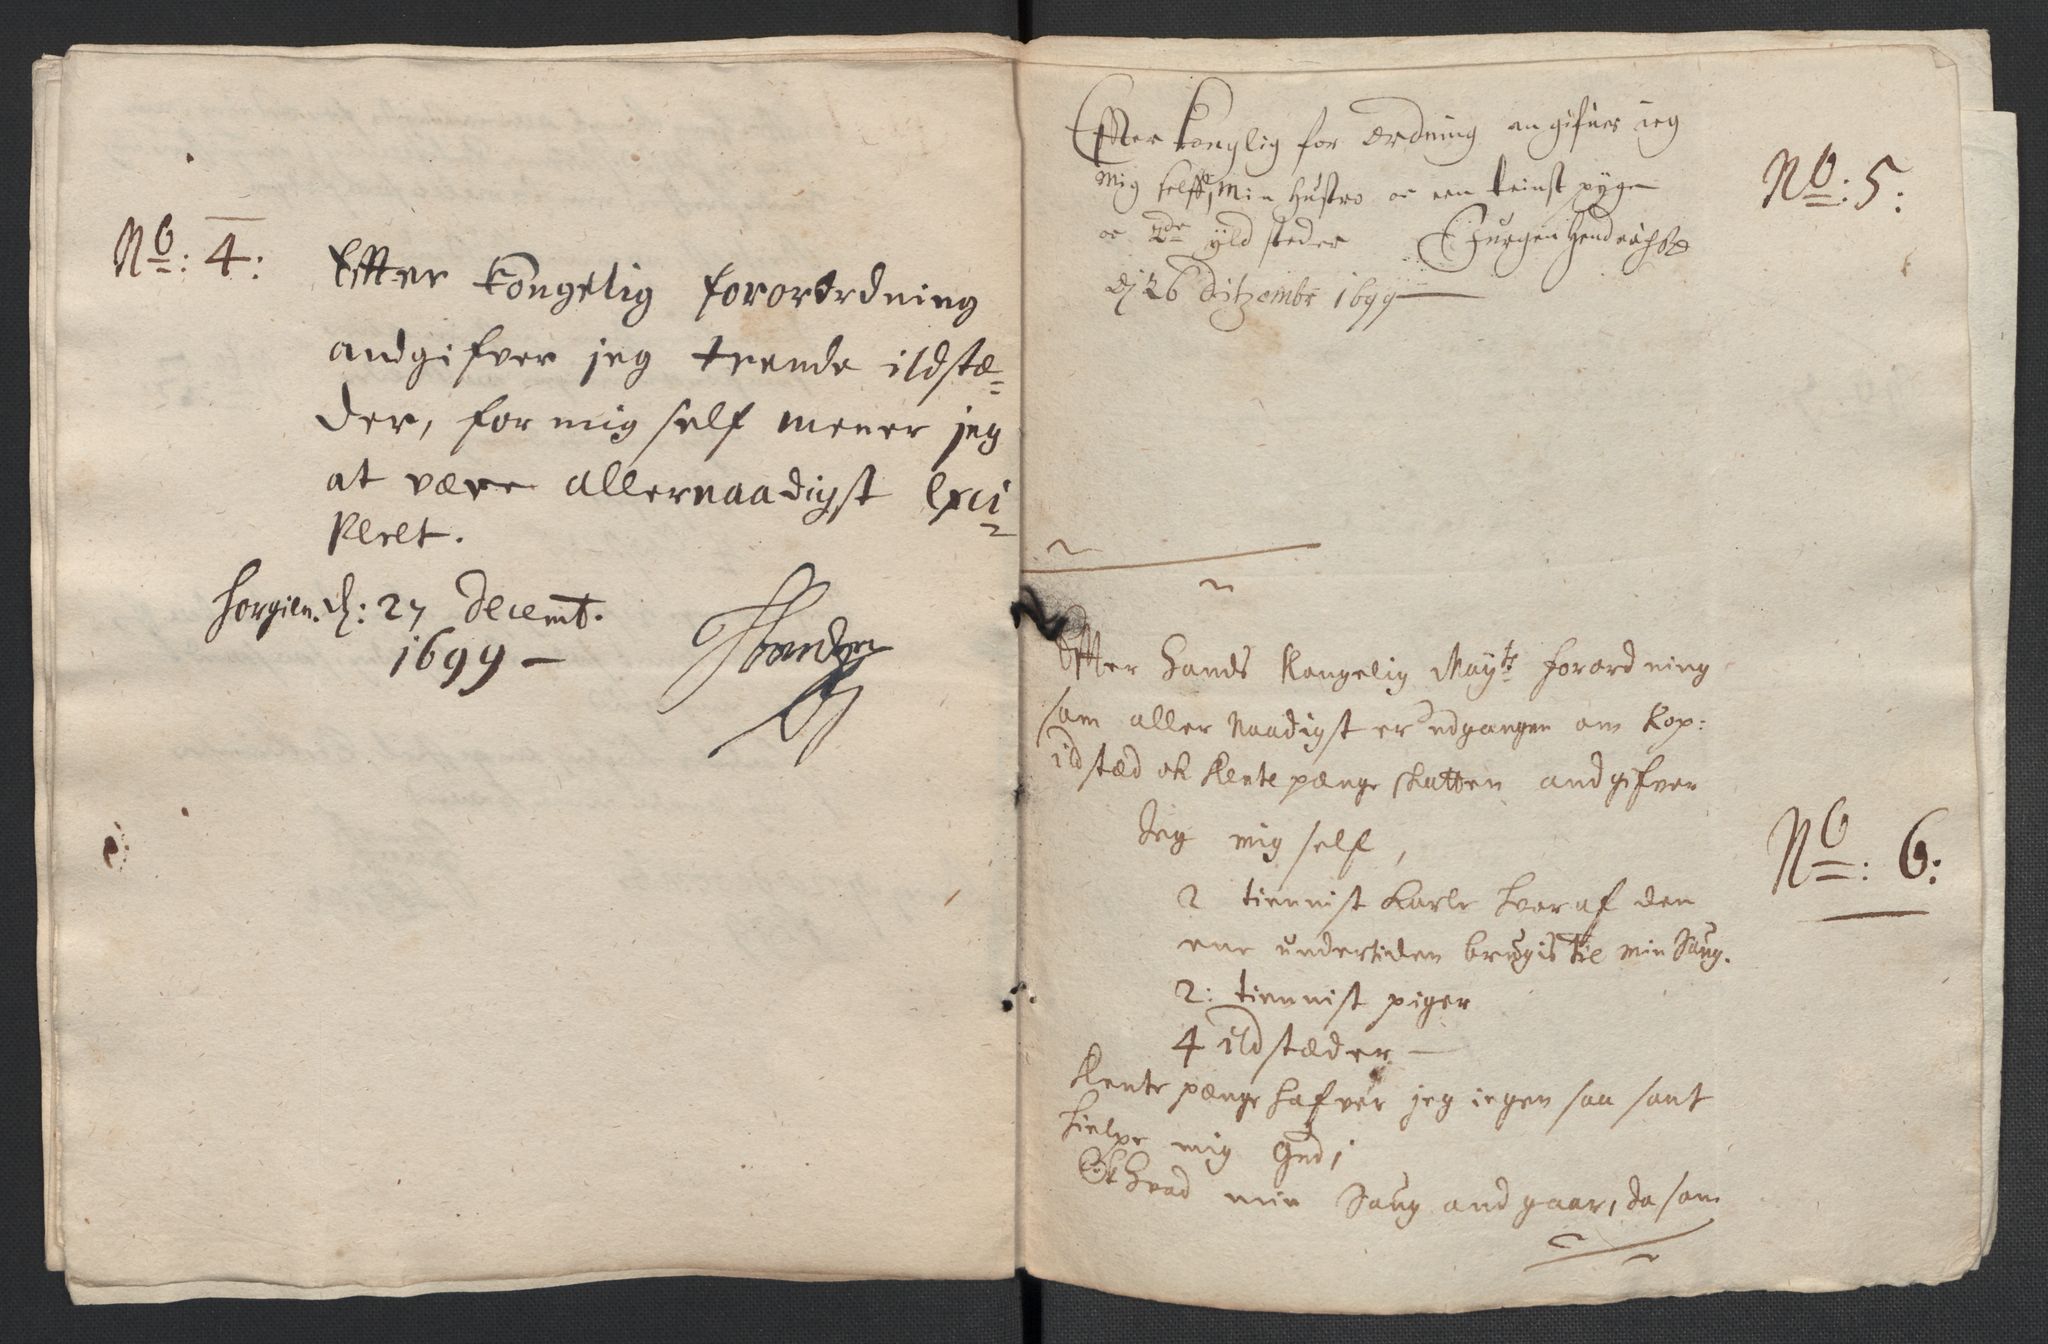 No: 4:
Effter kongelig forordning
andgifver jeg trende ildstæ=
der, for mig self mener jeg
at være allernaadigst Exci=
pleelt.
horgien. d: 27 Decemb.
1699 —
No: 5:
Effter konglig for ordning an gifuer ieg
mig selff, min Hustro oc een teinst pygen
oc 2de ÿld steder Jurgen Hendrichs
dj 26 ditzembr 1699 —
No: 6:
Effter Hands Kongelig Mayts forordning
som aller Naadigst er udgangen om Kop:
ildstæd ok Rente pænge skatten andgifver
Jeg mig self,
2 tiennist Karle hvoraf den
ene undertiden brugis til min Saug.
2: tiennist piger
4 ildstæder —
Rente pænge hafver jeg ingen saa sant
hielpe mig Gud;
Ok hvad min Saug andgaar, da som